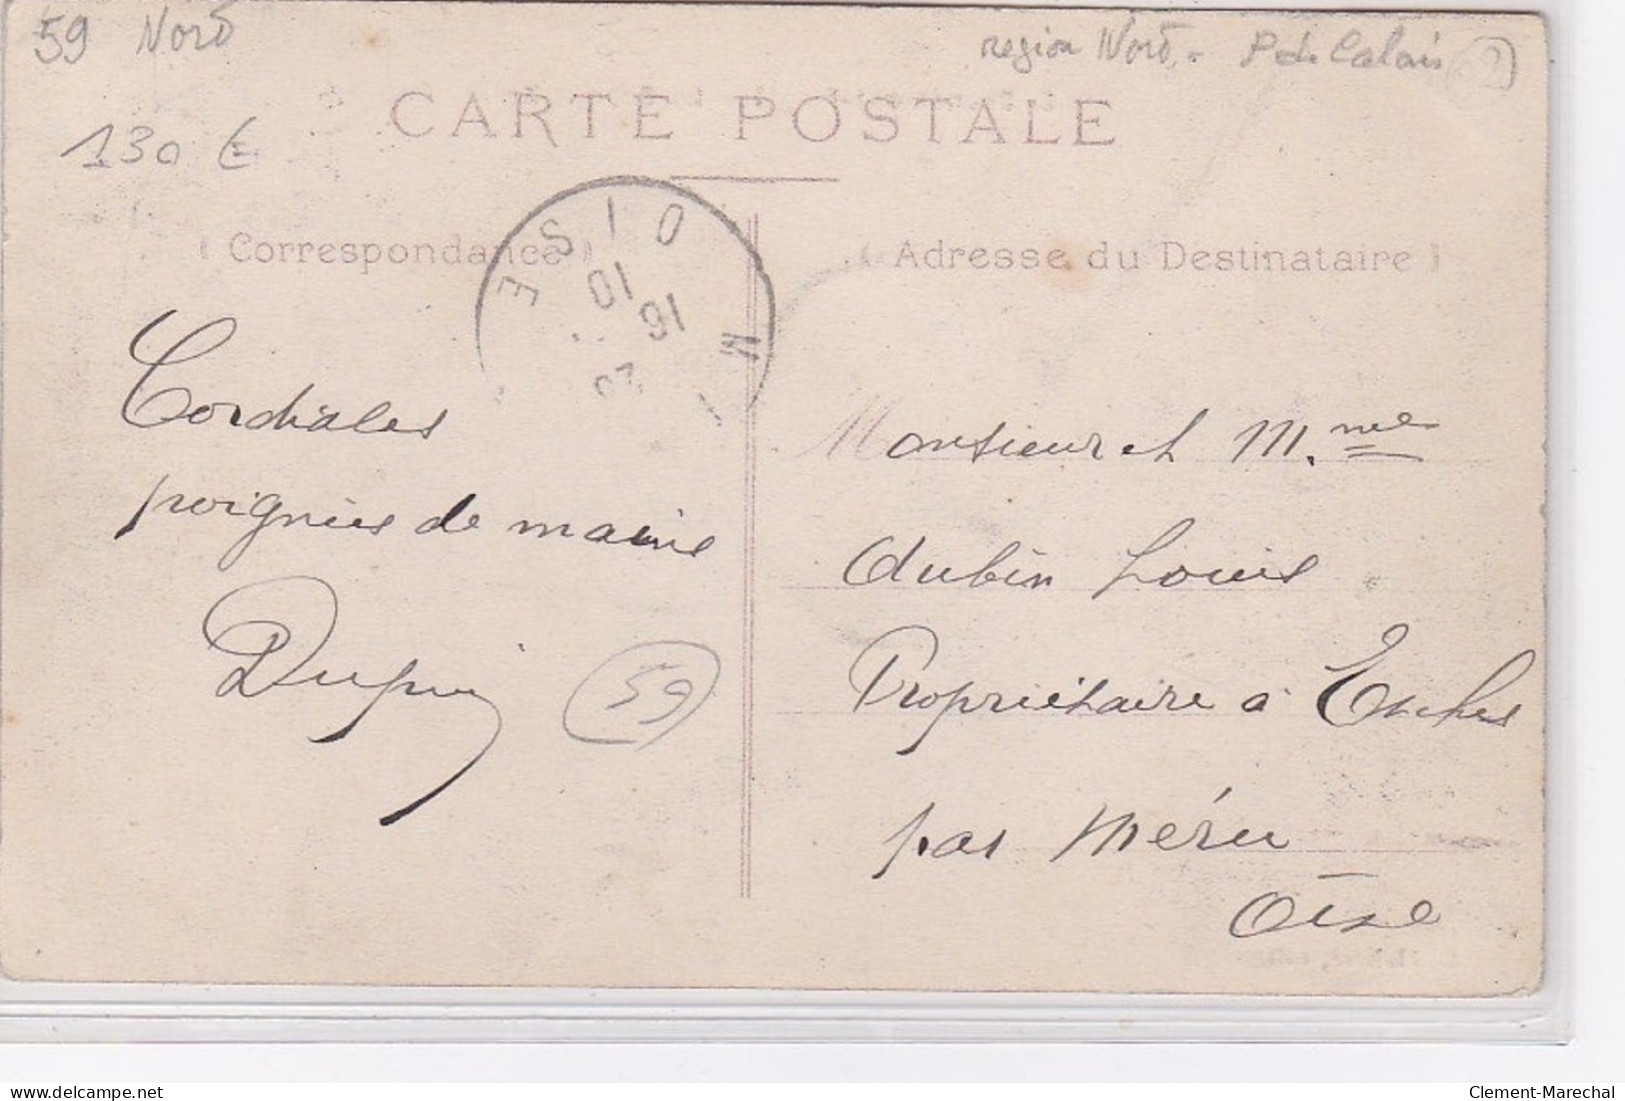 59 Nord
region Nord - P de Calais
CARTE POSTALE
130 €
Correspondance
Adresse du Destinataire
OISE
16
10
Cordiales
poignées de mains
Dupuis
59
Monsieur et Mme
Aubin Louis
Propriétaire à Esches
par Méru
Oise
delcampe.net
Clement-Marechal